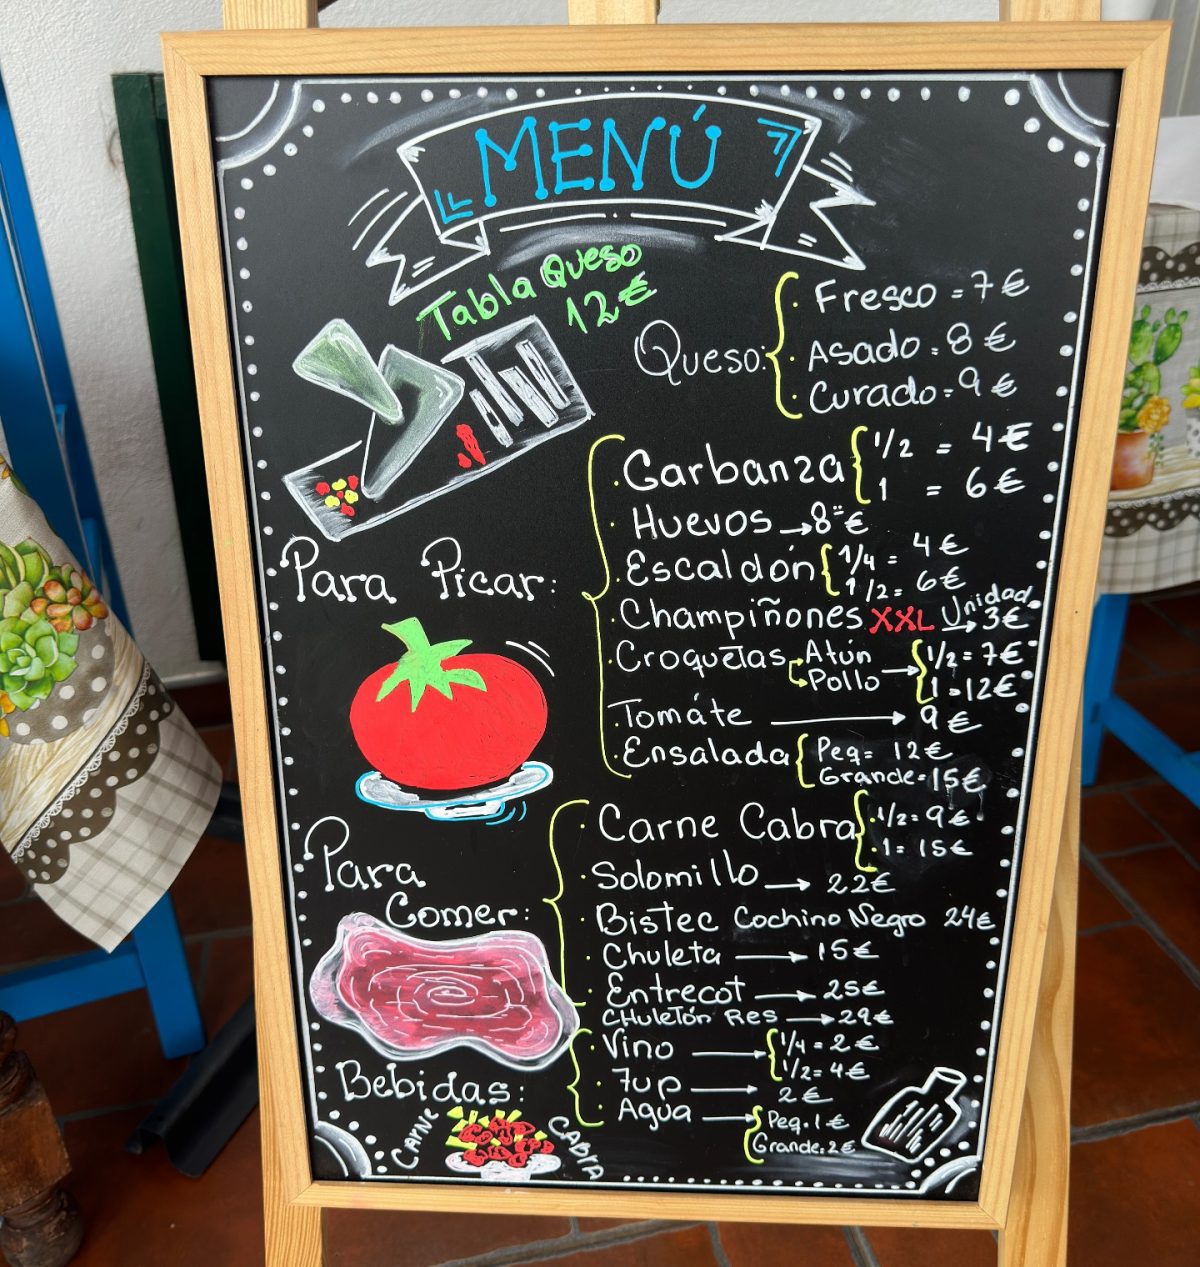 MENÚ
Tabla Queso
12€
Queso:
Fresco = 7€
Asado = 8€
Curado = 9€
Para Picar:
Garbanza 1/2 = 4€
1 = 6€
Huevos → 8€
Escaldón 1/4 = 4€
1/2 = 6€
Champiñones XXL Unidad → 3€
Croquetas Atún 1/2 = 7€
Pollo → 1 = 12€
Tomáte → 9€
Ensalada Peq = 12€
Grande = 15€
Para
Comer:
Carne Cabra 1/2 = 9€
1 = 15€
Solomillo → 22€
Bistec Cochino Negro 24€
Chuleta → 15€
Entrecot → 25€
CHuletón Res → 29€
Bebidas:
Vino → 1/4 = 2€
1/2 = 4€
7up → 2€
Agua → Peq. 1€
Grande = 2€
CARNE CABRA